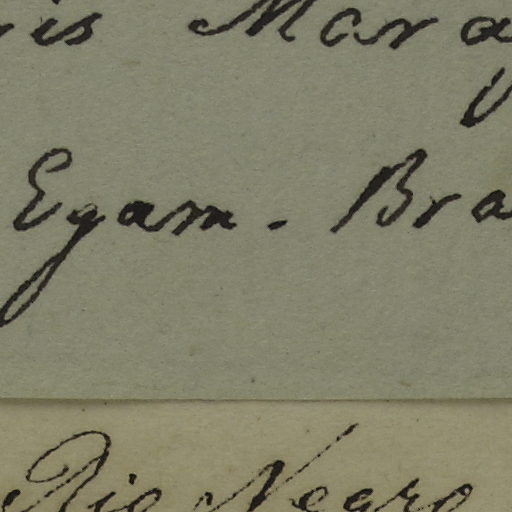 is Mara
Egam. Bra
Rio Negro